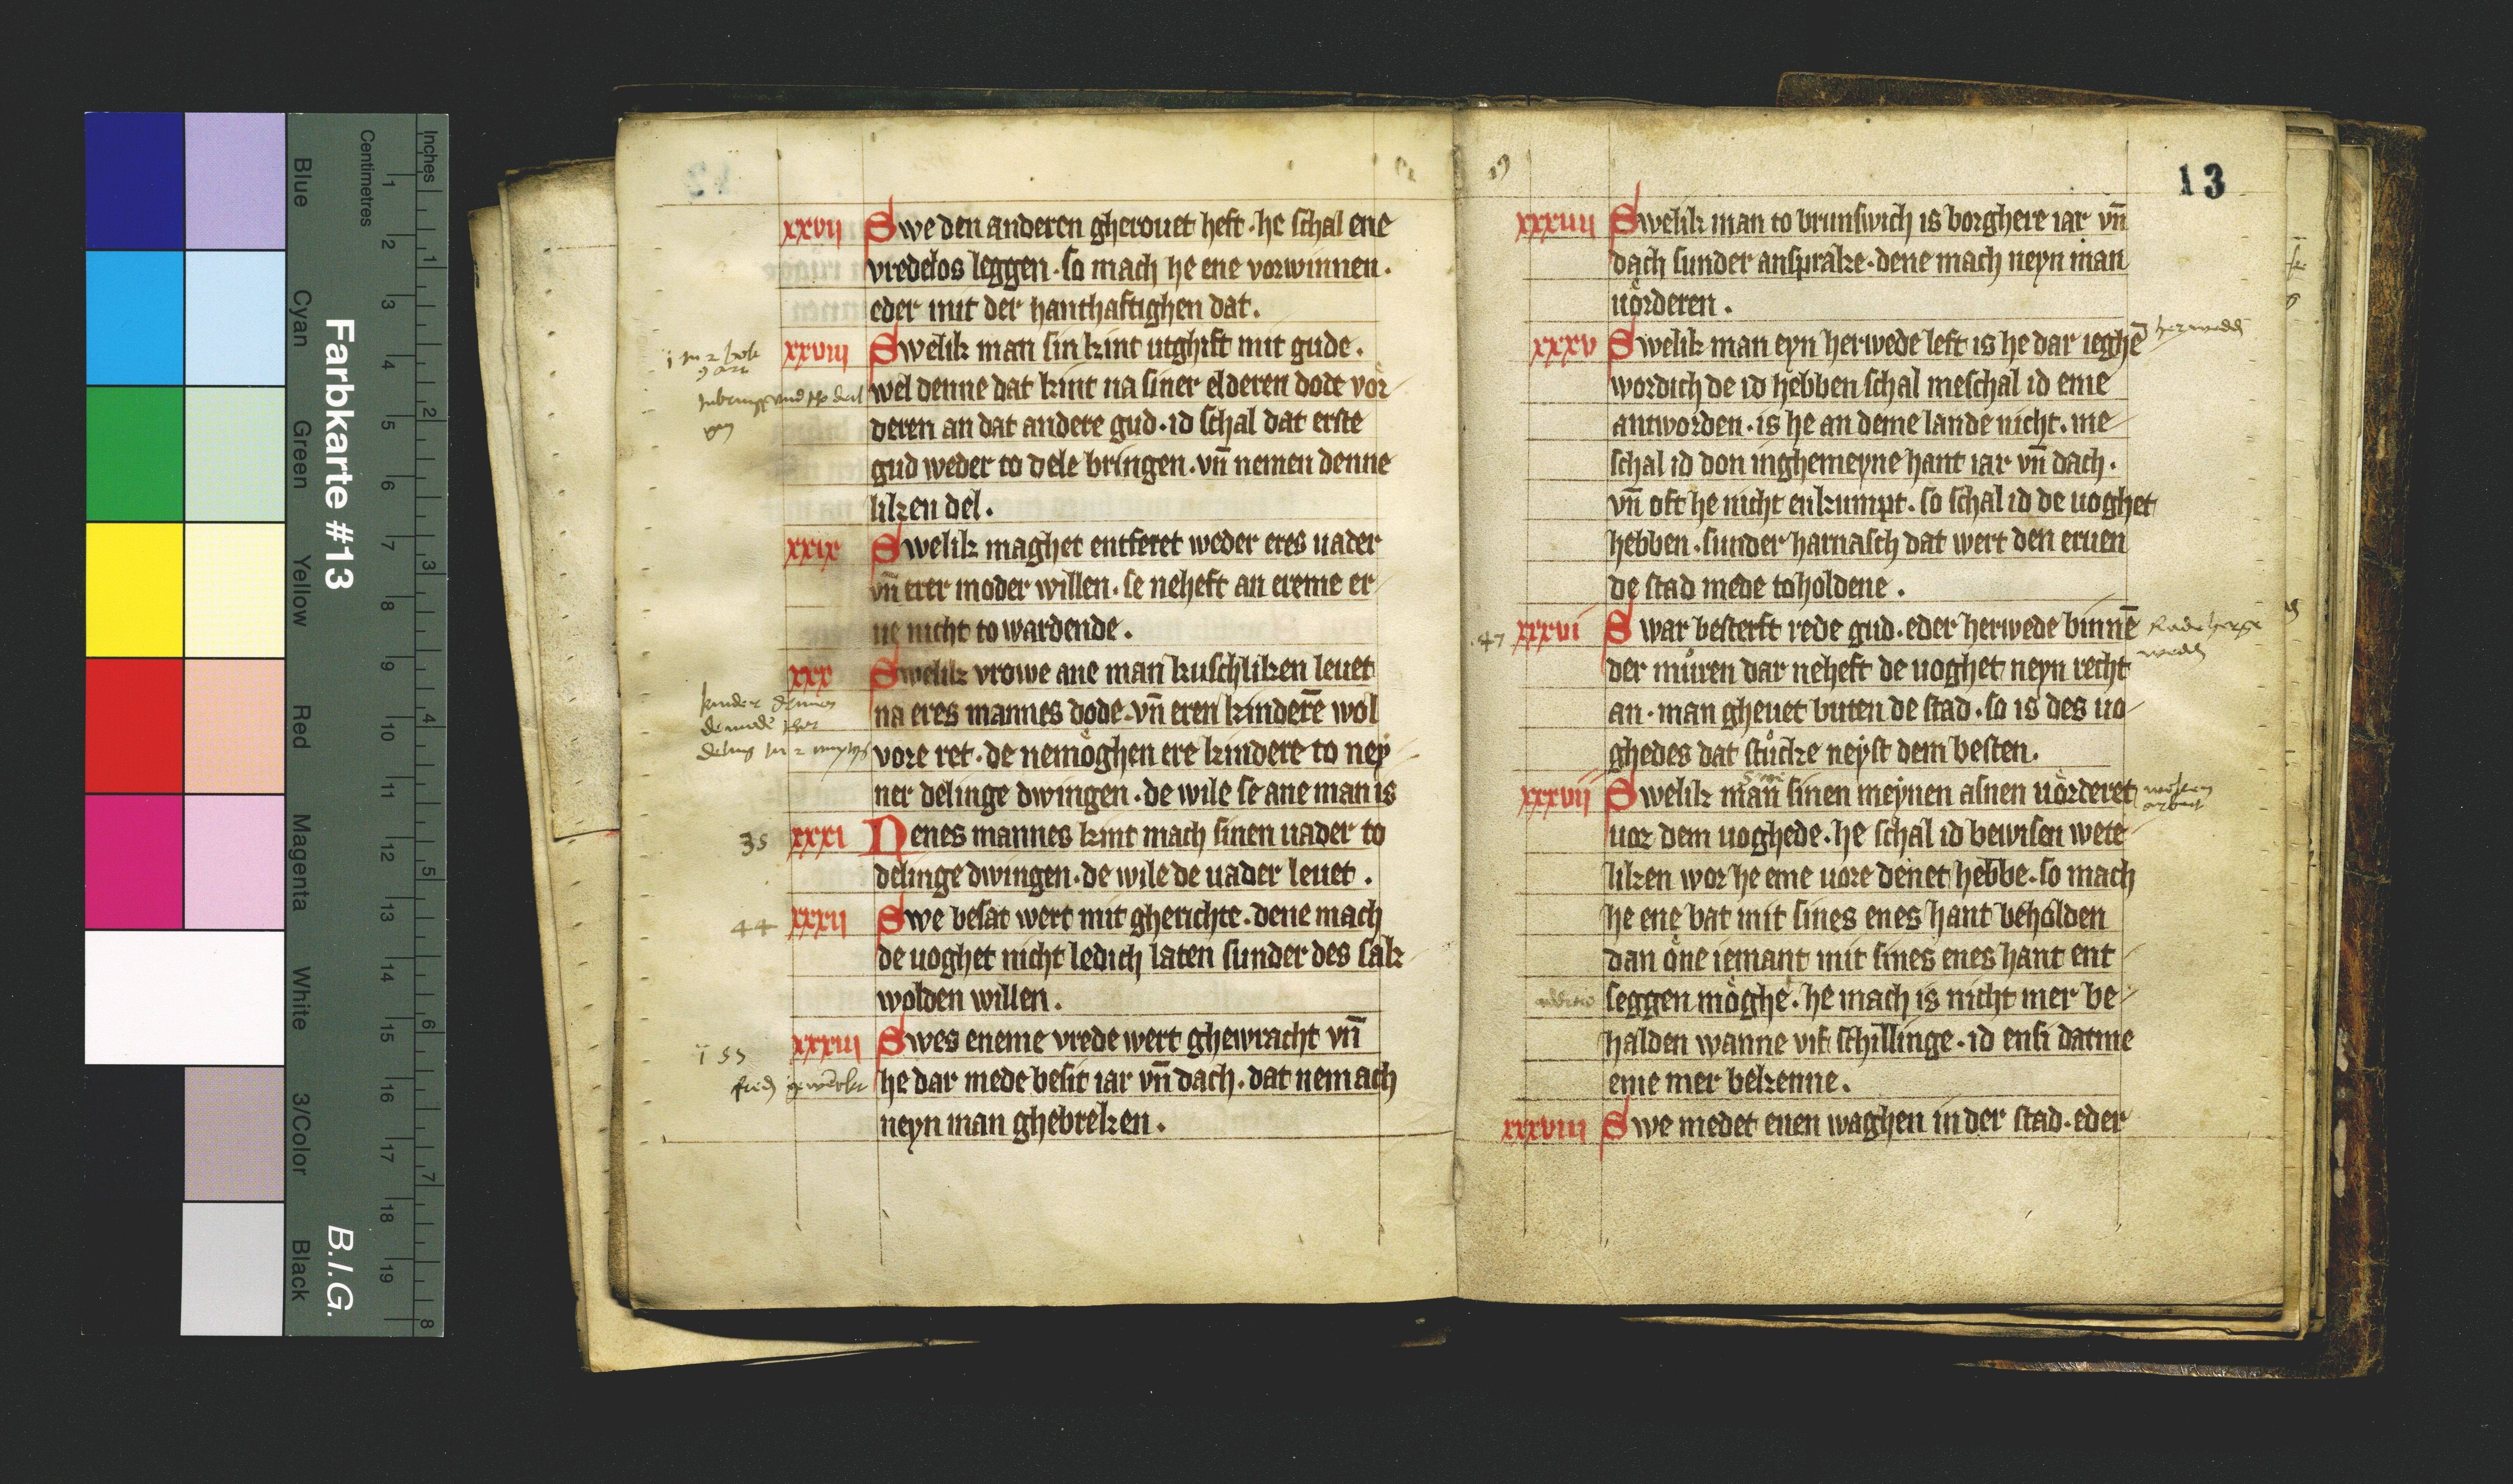 xxvii Swe den anderen gherouet heft · he schal ene
vredelos leggen · so mach he ene vorwinnen ·
eder mit der hanthaftighen dat.
xxviii Swelik man sin kint utghift mit gude.
wel denne dat kint na siner elderen dode vor
deren an dat andere gud · id schal dat erste
gud weder to dele bringen · vn̄ nemen denne
liken del.
xxix Swelik maghet entferet weder eres uader
vn̄ erer moder willen · se neheft an ereme er
ue nicht to wardende.
xxx Swelik vrowe ane man kuschliken leuet
na eres mannes dode · vn̄ eren kinderē wol
vore ret · de nemoghen ere kindere to ney
ner delinge dwingen · de wile se ane man is
35 xxxi Nenes mannes kint mach sinen uader to
delinge dwingen · de wile de uader leuet.
44 xxxii Swe besat wert mit gherichte · dene mach
de uoghet nicht ledich laten sunder des sak
wolden willen.
xxxiii Swes eneme vrede wert ghewracht vn̄
he dar mede besit iar vn̄ dach · dat nemach
neyn man ghebreken.
13
xxxiiii Swelik man to brunswich is borghere iar vn̄
dach sunder ansprake · dene mach neyn man
uorderen.
xxxv Swelik man eyn herwede left is he dar ieghē
wordich de id hebben schal meschal id eme
antworden · is he an deme lande nicht · me
schal id don inghemeyne hant iar vn̄ dach ·
vn̄ oft he nicht enkumpt · so schal id de uoghet
hebben · sunder harnasch dat wert den eruen
de stad mede toholdene.
47 xxxvi Swar besterft rede gud · eder herwede binnē
der muren dar neheft de uoghet neyn recht
an · man gheuet buten de stad · so is des uo
ghedes dat stucke neyst dem besten.
xxxvii Swelik man sinen meynen asnen uorderet
uor dem uoghede · he schal id bewisen wete
liken wor he eme uore denet hebbe · so mach
he ene bat mit sines enes hant beholden
dan one iemant mit sines enes hant ent
seggen moghe · he mach is nicht mer be
halden wanne vif schillinge · id ensi datme
eme mer bekenne.
xxxviii Swe medet enen waghen in der stad · eder
Farbkarte #13
B.I.G.
Centimetres
Inches
1 2 3 4 5 6 7 8 9 10 11 12 13 14 15 16 17 18 19
1 2 3 4 5 6 7 8
Blue
Cyan
Green
Yellow
Red
Magenta
White
3/Color
Black